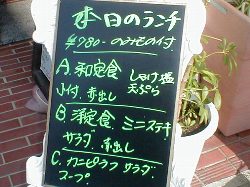 本日のランチ
¥980- のみもの付
A. 和定食 しゃけ塩
天ぷら
小付. 赤出し
B. 洋定食 ミニステキ
サラダ 赤出し
C. カニピラフ サラダ
スープ